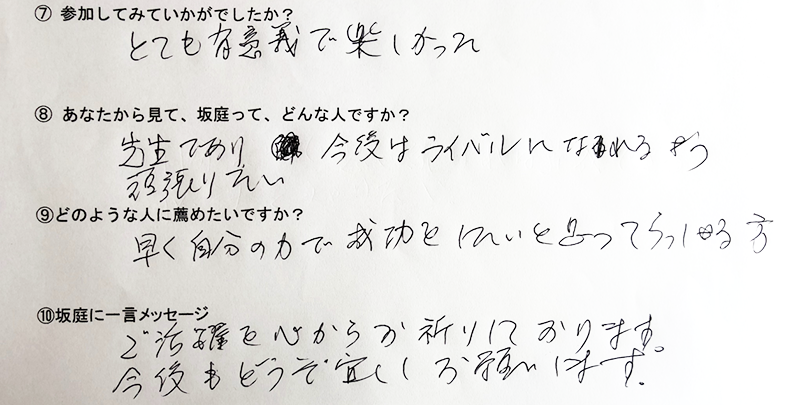 ⑦ 参加してみていかがでしたか？
とても有意義で楽しかった
⑧ あなたから見て、坂庭って、どんな人ですか？
先生であり 今後はライバルになれるよう
頑張りたい
⑨どのような人に薦めたいですか？
早く自分の力で成功をしたいと思ってらっしゃる方
⑩坂庭に一言メッセージ
ご活躍を心からお祈りしております。
今後もどうぞ宜しくお願いします。